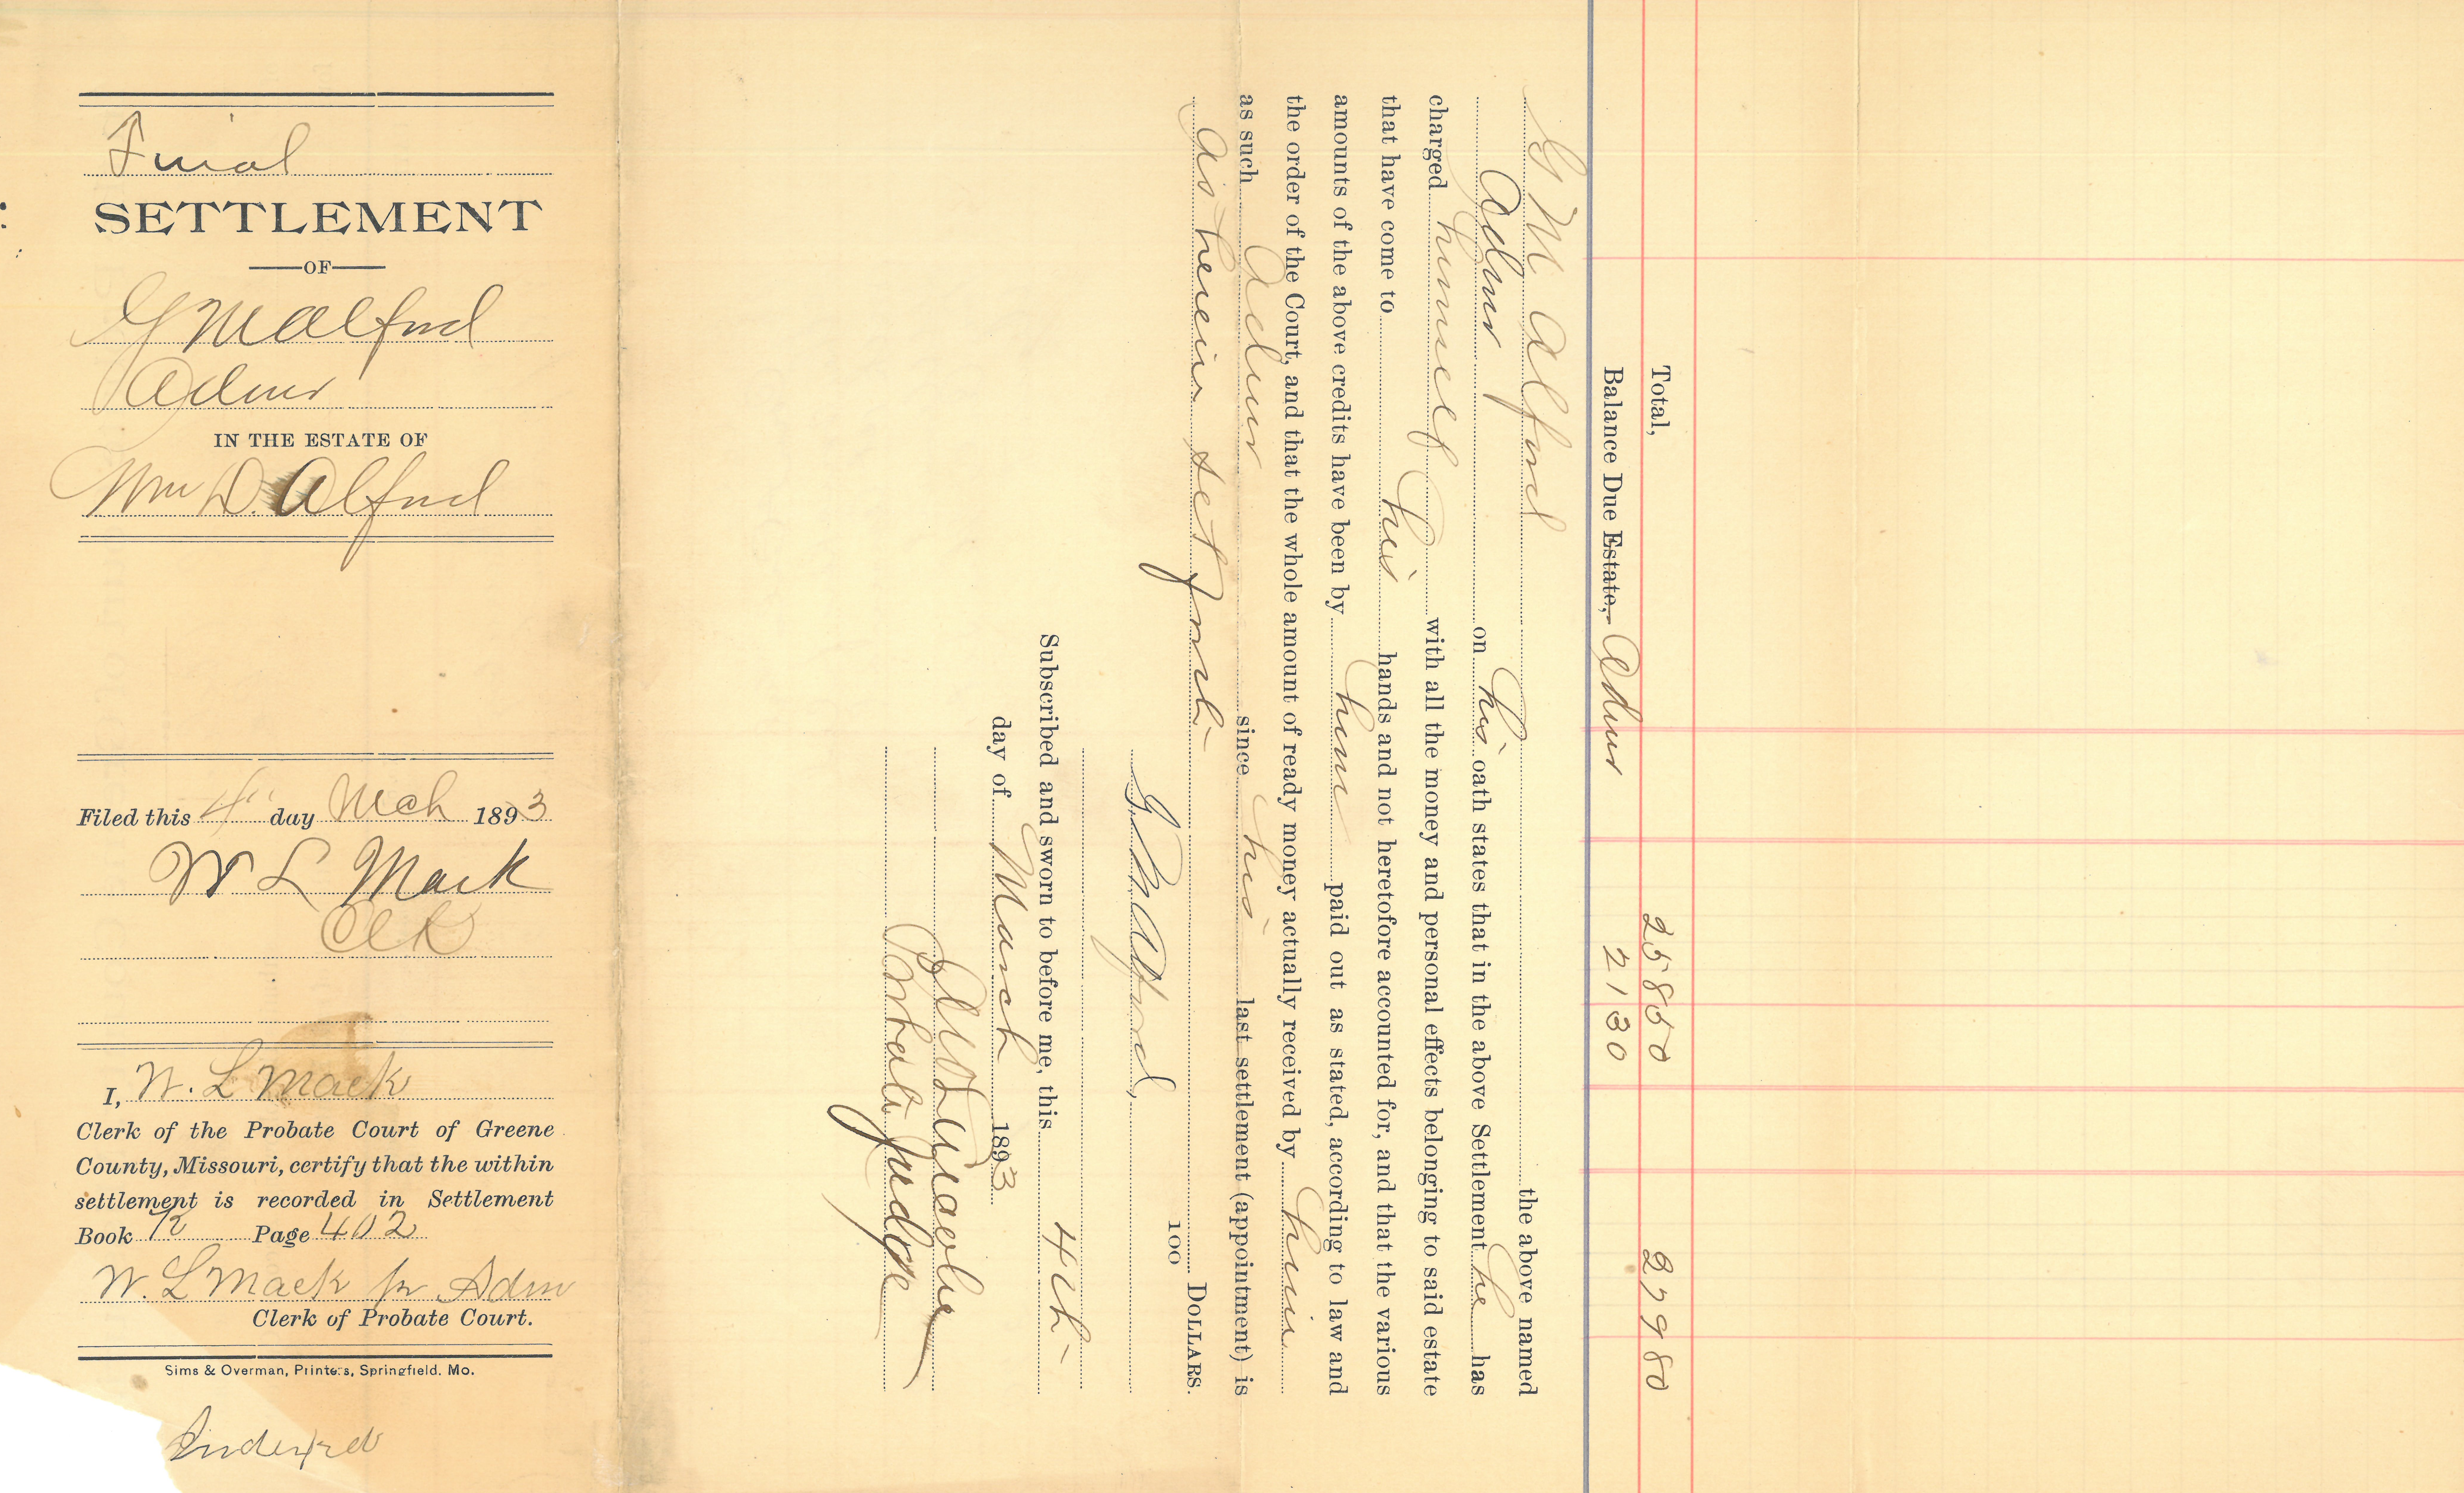 Final
SETTLEMENT
OF
G M Alford
Admr
IN THE ESTATE OF
Wm D. Alford
Filed this 4" day Mch 1893
W L Mack
Clk
I, W. L Mack
Clerk of the Probate Court of Greene
County, Missouri, certify that the within
settlement is recorded in Settlement
Book R Page 402
W. L Mack Adm
Clerk of Probate Court.
Sims & Overman, Printers, Springfield. Mo.
Indexed
Total, 258 50 279 80
Balance Due Estate, Admr 21 30
G M Alford the above named
Admr on his oath states that in the above Settlement he has
charged himself with all the money and personal effects belonging to said estate
that have come to his hands and not heretofore accounted for, and that the various
amounts of the above credits have been by him paid out as stated, according to law and
the order of the Court, and that the whole amount of ready money actually received by him
as such Admr since his last settlement (appointment) is
as herein set forth
100 DOLLARS.
G M Alford,
Subscribed and sworn to before me, this 4th
day of March 1893
Probate Judge